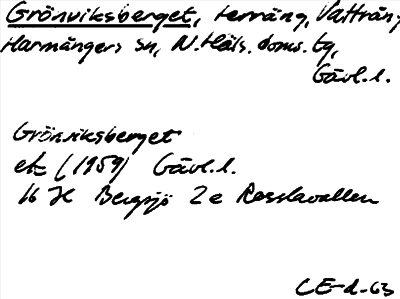 Grönviksberget, terräng, Vattrång,
Harmångers sn, N. Häls. doms. tg,
Gävl. l.
Grönviksberget
ek (1959) Gävl. l.
16 H Bergsjö 2 e Rosslavallen
CE-d-63